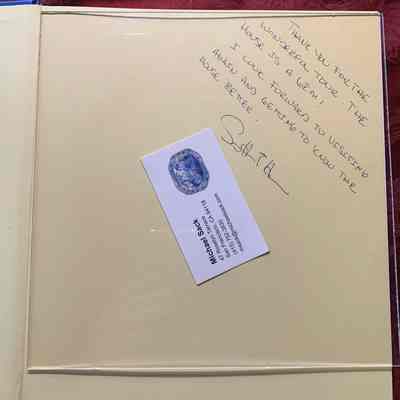 THANK YOU FOR THE
WONDERFUL TOUR. THE
HOUSE IS A GEM!
I LOOK FORWARD TO VISITING
AGAIN AND GETTING TO KNOW THE
HOUSE BETTER.
Michael Sack
San Francisco, CA 94118